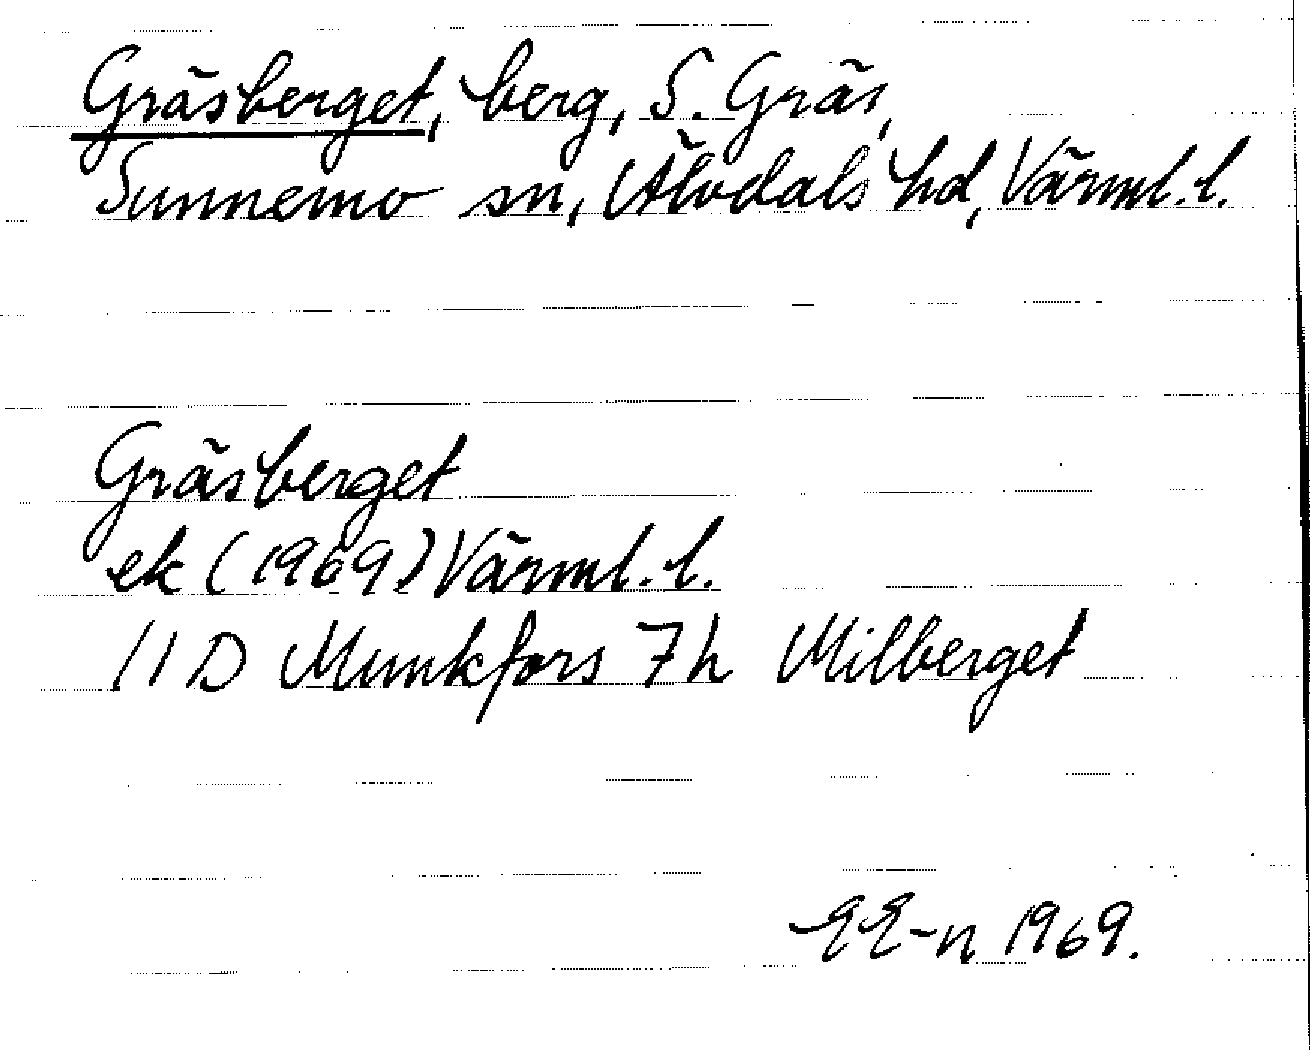 Gräsberget, berg, S. Gräs,
Sunnemo sn, Älvdals hd, Värml. l.
Gräsberget
ek (1969) Värml. l.
11 D Munkfors 7h Milberget
EE-n 1969.